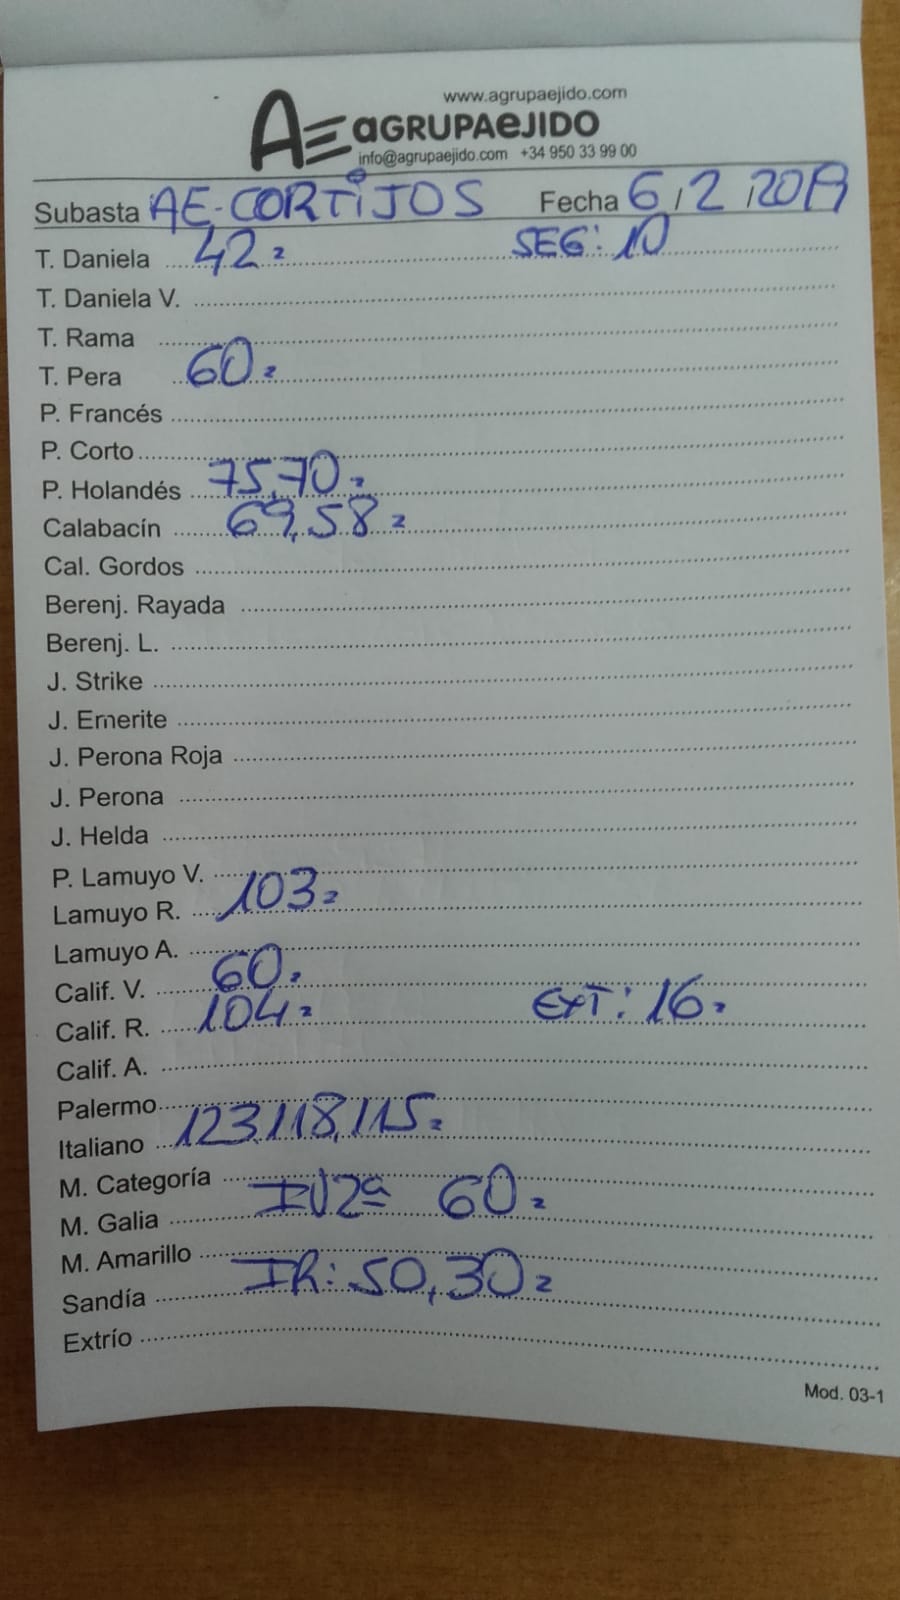 www.agrupaejido.com
AE aGRUPAeJIDO
info@agrupaejido.com +34 950 33 99 00
Subasta AE-CORTIJOS Fecha 6/2/2019
T. Daniela 42 SEG: 10
T. Daniela V.
T. Rama
T. Pera 60
P. Francés
P. Corto
P. Holandés 75,70
Calabacín 69,58
Cal. Gordos
Berenj. Rayada
Berenj. L.
J. Strike
J. Emerite
J. Perona Roja
J. Perona
J. Helda
P. Lamuyo V.
Lamuyo R. 103
Lamuyo A.
Calif. V. 60
Calif. R. 104 EXT: 16
Calif. A.
Palermo
Italiano 123,118,115
M. Categoría
M. Galia IV2ª 60
M. Amarillo
Sandía IR: 50,30
Extrío
Mod. 03-1